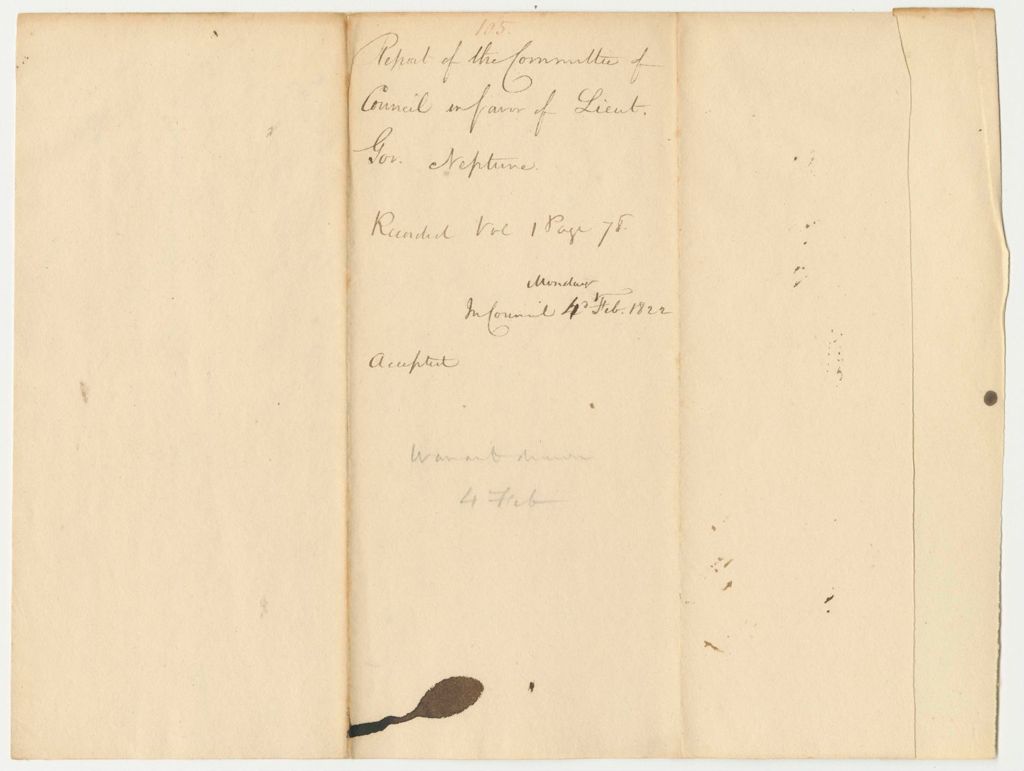 105.
Report of the Committee of
Council in favor of Lieut.
Gov. Neptune.
Recorded Vol 1 Page 78.
Monday
In Council 4th Feb. 1822
Accepted
Warrant drawn
4 Feb